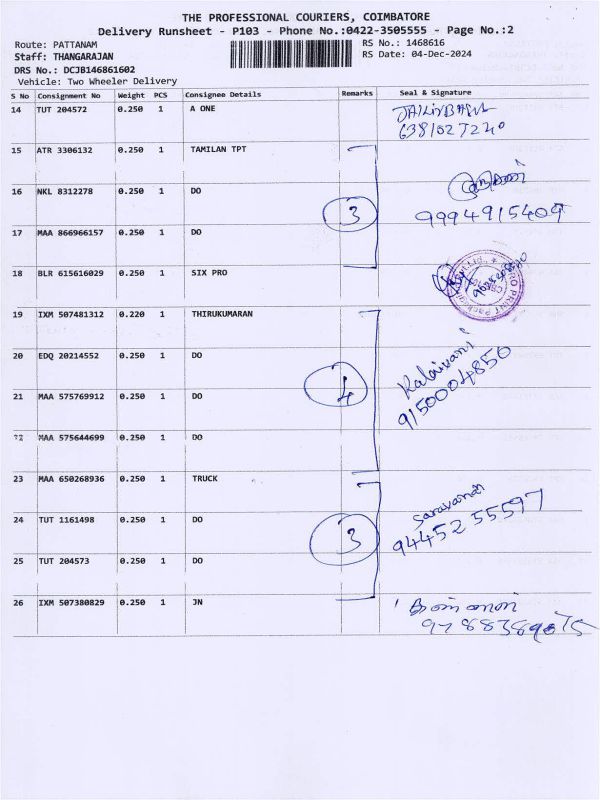 THE PROFESSIONAL COURIERS, COIMBATORE
Delivery Runsheet - P103 - Phone No.:0422-3505555 - Page No.:2
Route: PATTANAM
RS No.: 1468616
Staff: THANGARAJAN
RS Date: 04-Dec-2024
DRS No.: DCJB146861602
Vehicle: Two Wheeler Delivery
S No Consignment No Weight PCS Consignee Details Remarks Seal & Signature
14 TUT 204572 0.250 1 A ONE
15 ATR 3306132 0.250 1 TAMILAN TPT
16 NKL 8312278 0.250 1 DO 3
9994915409
17 MAA 866966157 0.250 1 DO
18 BLR 615616029 0.250 1 SIX PRO
19 IXM 507481312 0.220 1 THIRUKUMARAN
20 EDQ 20214552 0.250 1 DO
Kalaivani
21 MAA 575769912 0.250 1 DO 4
9150004850
22 MAA 575644699 0.250 1 DO
23 MAA 650268936 0.250 1 TRUCK
Saravanan
24 TUT 1161498 0.250 1 DO 3
94452 55597
25 TUT 204573 0.250 1 DO
26 IXM 507380829 0.250 1 JN